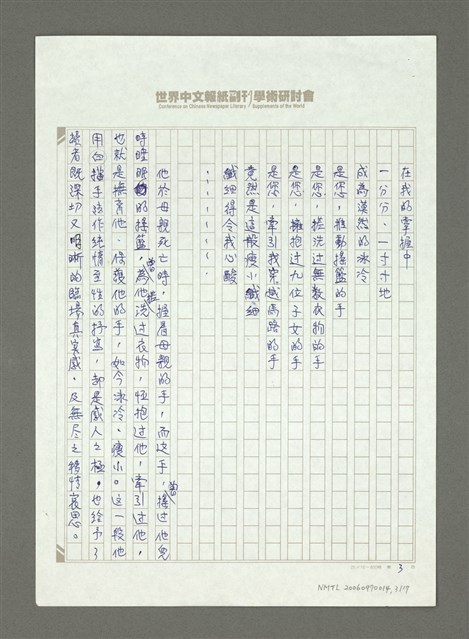 世界中文報紙副刊學術研討會
Conference on Chinese Newspaper Literary Supplements of the World
在我的掌握中
一分分、一寸寸地
成為漠然的冰冷
是您,推動搖籃的手
是您,搓洗过無数衣物的手
是您,擁抱过九位子女的手
是您,牽引我穿越馬路的手
竟然是這般瘦小纖細
纖細得令我心酸
......
他於母親死亡時,握著母親的手,而这手,曾搖过他兒
時睡眠的搖籃,曾為他搓洗过衣物,怀抱过他,牽引过他,
也就是撫育他、保護他的手,如今冰冷、瘦小。这一段他
用血描手法作純情至性的抒寫,却是感人之極,也給予了
讀者既深切又明晰的臨場真实感,及無尽之情寂思。
3
NMTL 20060970014, 3/17